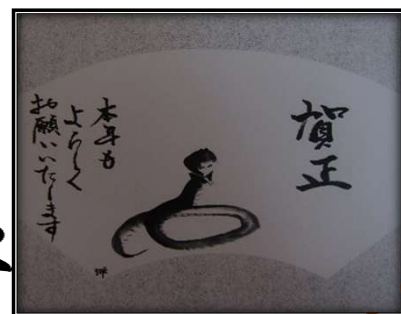 賀正
本年も
よろしく
お願いいたします